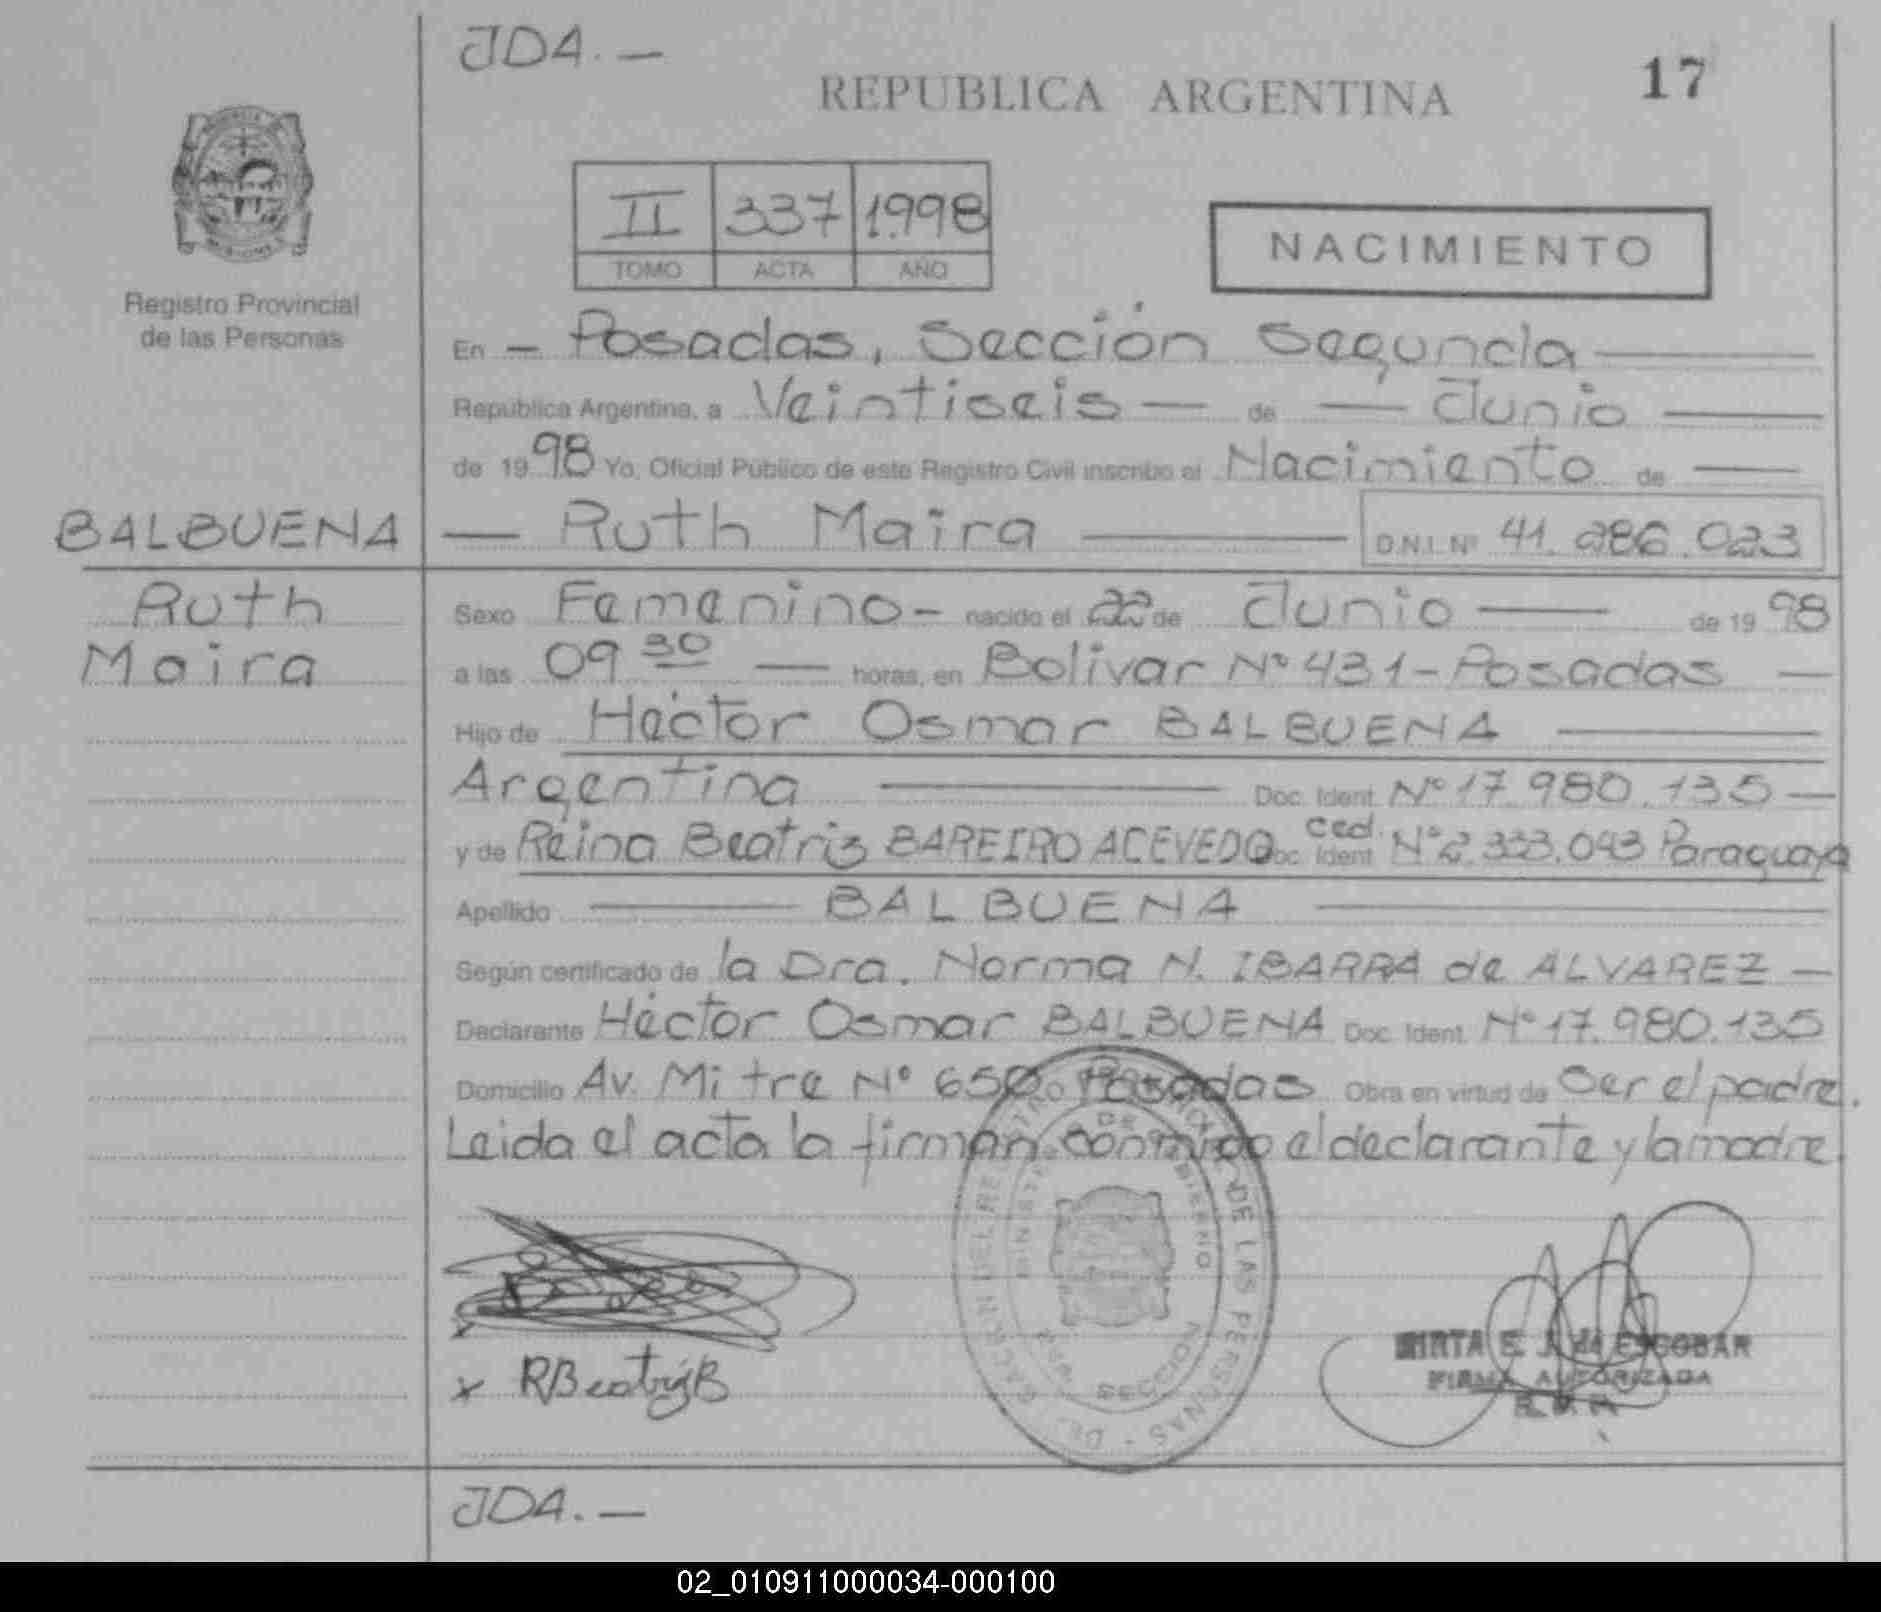 JDA.—
REPUBLICA ARGENTINA
17
II 337 1998
TOMO ACTA AÑO
NACIMIENTO
Registro Provincial
de las Personas
En — Posadas, Sección Segunda —
República Argentina, a Veintiseis — de — Junio —
de 1998 Yo, Oficial Público de este Registro Civil inscribo el Nacimiento de —
BALBUENA — Ruth Maira — D.N.I. Nº 41.286.023
Ruth
Maira
Sexo Femenino - nacido el 22 de Junio — de 1998
a las 09 30 — horas, en Bolivar Nº 431 - Posadas —
Hijo de Héctor Osmar BALBUENA —
Argentina — Doc. Ident. Nº 17.980.135 —
y de Reina Beatriz BAREIRO ACEVEDO Doc. Ident. ced. Nº 2.333.043 Paraguaya
Apellido — BALBUENA —
Según certificado de la Dra. Norma N. IBARRA de ALVAREZ —
Declarante Héctor Osmar BALBUENA Doc. Ident. Nº 17.980.135
Domicilio Av. Mitre Nº 650 Posadas Obra en virtud de Ser el padre.
Leida el acta la firman conmigo el declarante y la madre.
x
x RBeatrizB
DE LAS PERSONAS
SECCION
MIRTA E. J. de ESCOBAR
FIRMA AUTORIZADA
JDA.—
02_010911000034-000100